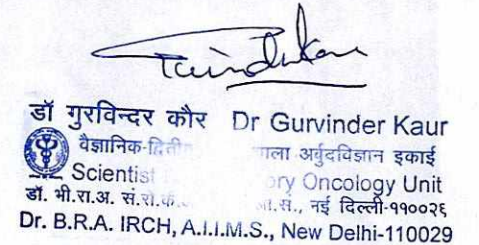 डॉ गुरविन्दर कौर Dr Gurvinder Kaur
वैज्ञानिक- अर्बुदविज्ञान इकाई
Scientist Oncology Unit
डॉ. भी.रा.अ. नई दिल्ली-११००२६
Dr. B.R.A. IRCH, A.I.I.M.S., New Delhi-110029